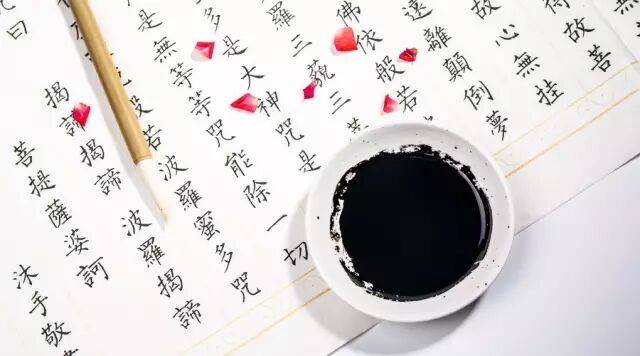 得故菩
故心無挂
遠離顛倒夢
佛依般若
羅三藐三
多是大神咒是
是無等等咒能除一切
般若波羅蜜多咒
曰揭諦揭諦波羅揭諦
菩提薩婆訶
沐手敬書